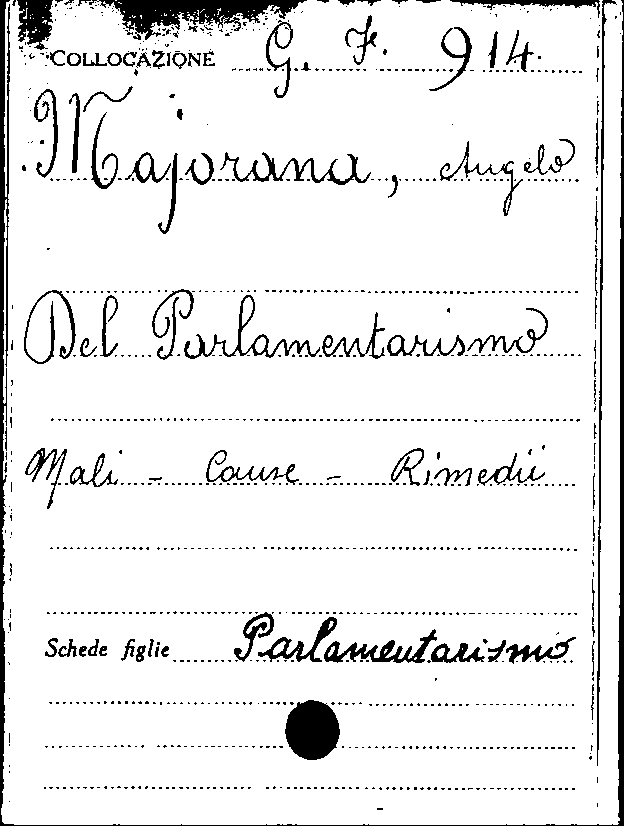 COLLOCAZIONE G. F. 914.
Majorana, Angelo
Del Parlamentarismo
Mali - Cause - Rimedii
Schede figlie Parlamentarismo